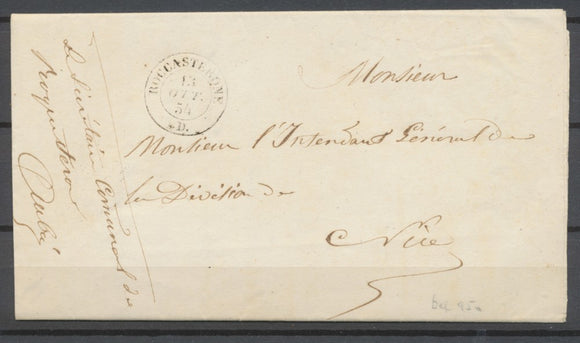 Le Secrétaire Comunal de
Roquesteron
Aubé
ROCCASTERONE
13
OTT.
54
Monsieur
Monsieur l'Intendant Général de
la Division de
Nice